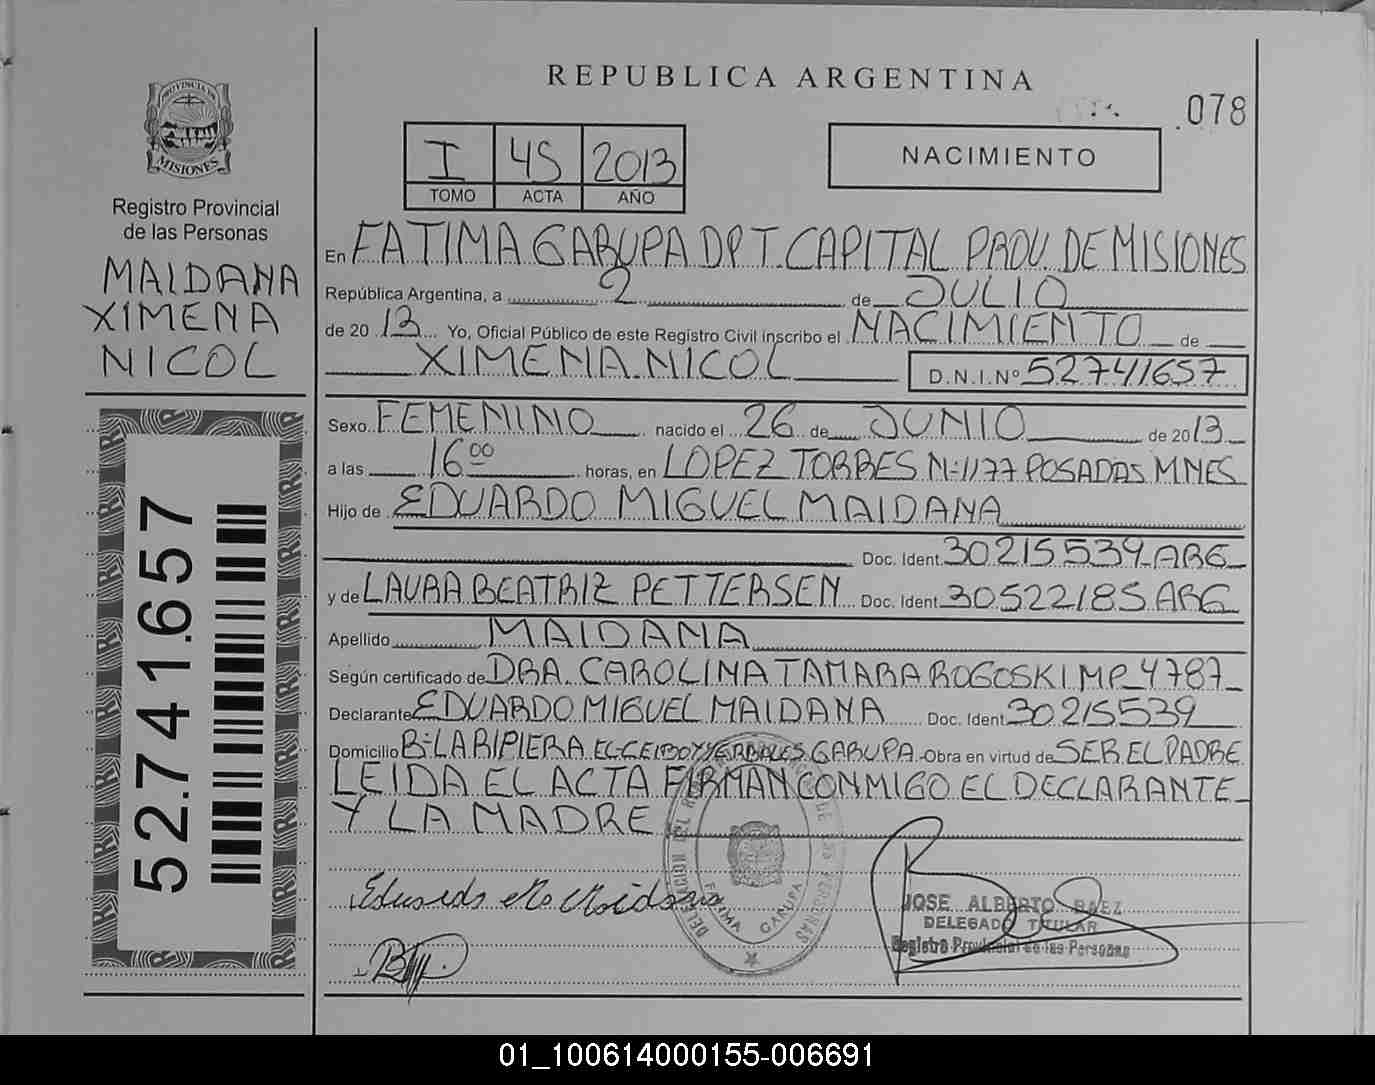 REPUBLICA ARGENTINA
078
PROVINCIA DE MISIONES
Registro Provincial
de las Personas
MAIDANA
XIMENA
NICOL
52.741.657
I 45 2013
TOMO ACTA AÑO
NACIMIENTO
En FATIMA GARUPA DPT. CAPITAL PROV. DE MISIONES
República Argentina, a 2 de JULIO
de 2013 Yo, Oficial Público de este Registro Civil inscribo el NACIMIENTO de
XIMENA NICOL D.N.I.Nº 52741657
Sexo FEMENINO nacido el 26 de JUNIO de 2013
a las 16 00 horas, en LOPEZ TORRES Nº 1177 POSADAS MNES
Hijo de EDUARDO MIGUEL MAIDANA
Doc. Ident. 30215539 ARG
y de LAURA BEATRIZ PETTERSEN Doc. Ident. 30522185 ARG
Apellido MAIDANA
Según certificado de DRA. CAROLINA TAMARA ROGOSKI MP 4787
Declarante EDUARDO MIGUEL MAIDANA Doc. Ident. 30215539
Domicilio Bº LA RIPIERA EL CEIBO Y YERBALES GARUPA Obra en virtud de SER EL PADRE
LEIDA EL ACTA FIRMAN CONMIGO EL DECLARANTE
Y LA MADRE
FATIMA GARUPA
JOSE ALBERTO BAEZ
DELEGADO TITULAR
Registro Provincial de las Personas
01_100614000155-006691